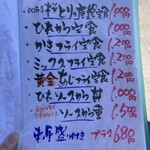 とり唐揚定食 1,000円
ひれかつ定食 1,000円
かきフライ定食 1,200円
ミックスフライ定食 1,200円
黄金あじフライ定食 1,200円
ひれソースかつ丼 1,000円
ソースかつ重 1,500円
付き プラス680円